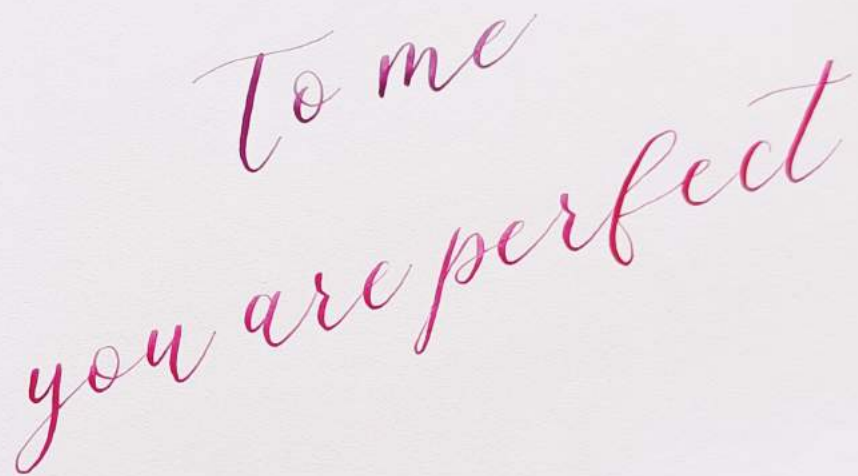 To me
you are perfect